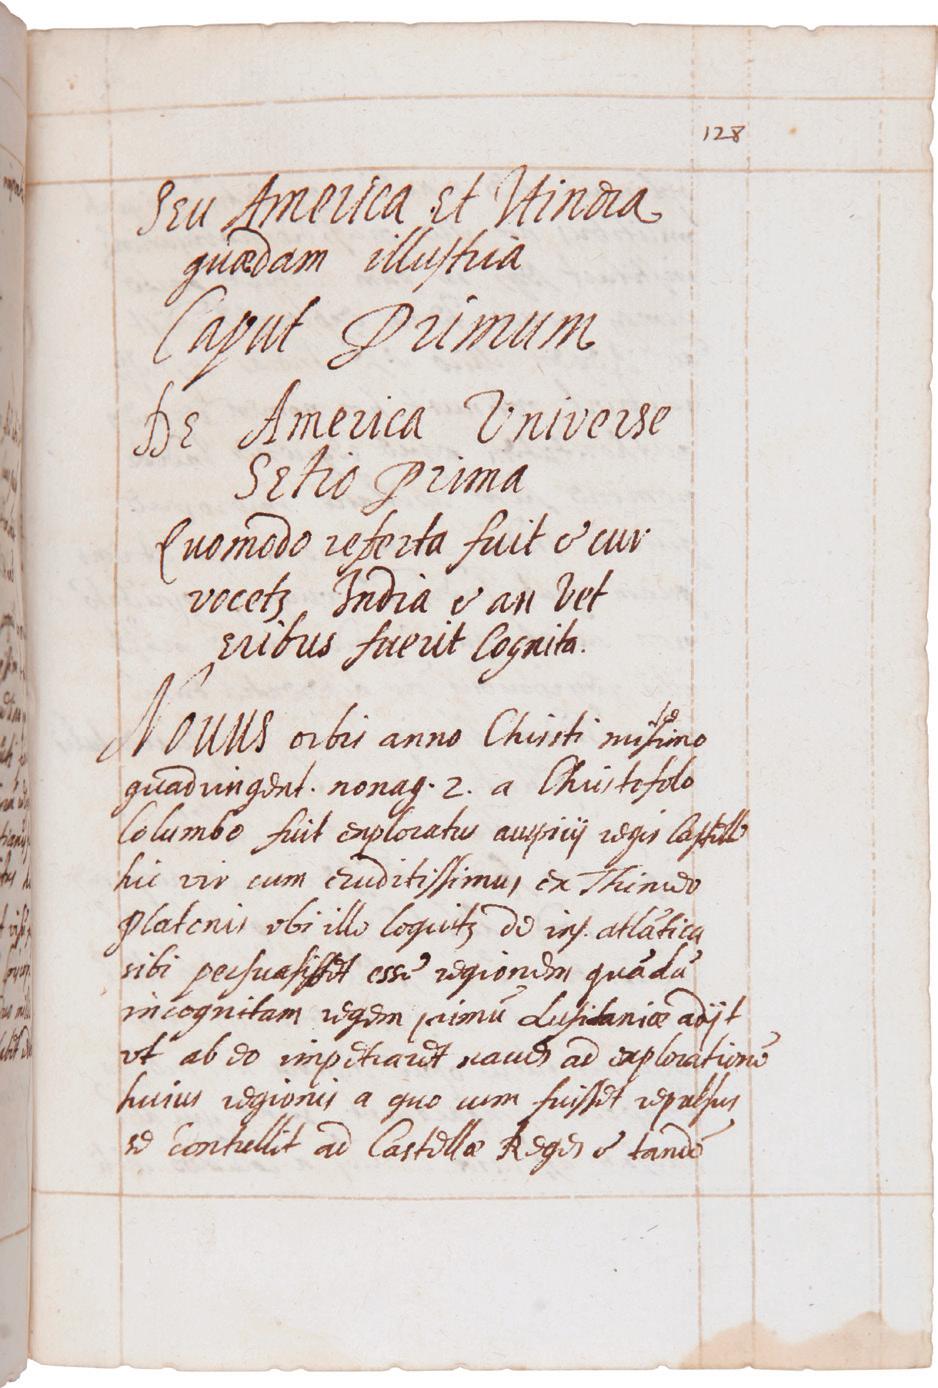 128
Seu America et Utindia
quædam illustria
Caput Primum
De America Universe
Setio Prima
Quomodo referta fuit & cur
vocetz India & an Vet
eribus fuerit Cognita.
Novus orbis anno Christi
quadringent. nonag. 2. a Christofolo
Columbo fuit exploratus auspiiij regis Castellæ
hic vir cum eruditissimus ex Thimeo
Platonis vbi ille loquitz de ins. atlãtica
sibi persuasisset esse regionem quãdã
incognitam regem primũ Lusitaniæ adijt
vt ab eo impetraret naues ad explorationẽ
huius regionis a quo cum fuisset repulsus
se contullit ad Castellæ Reges & tandẽ